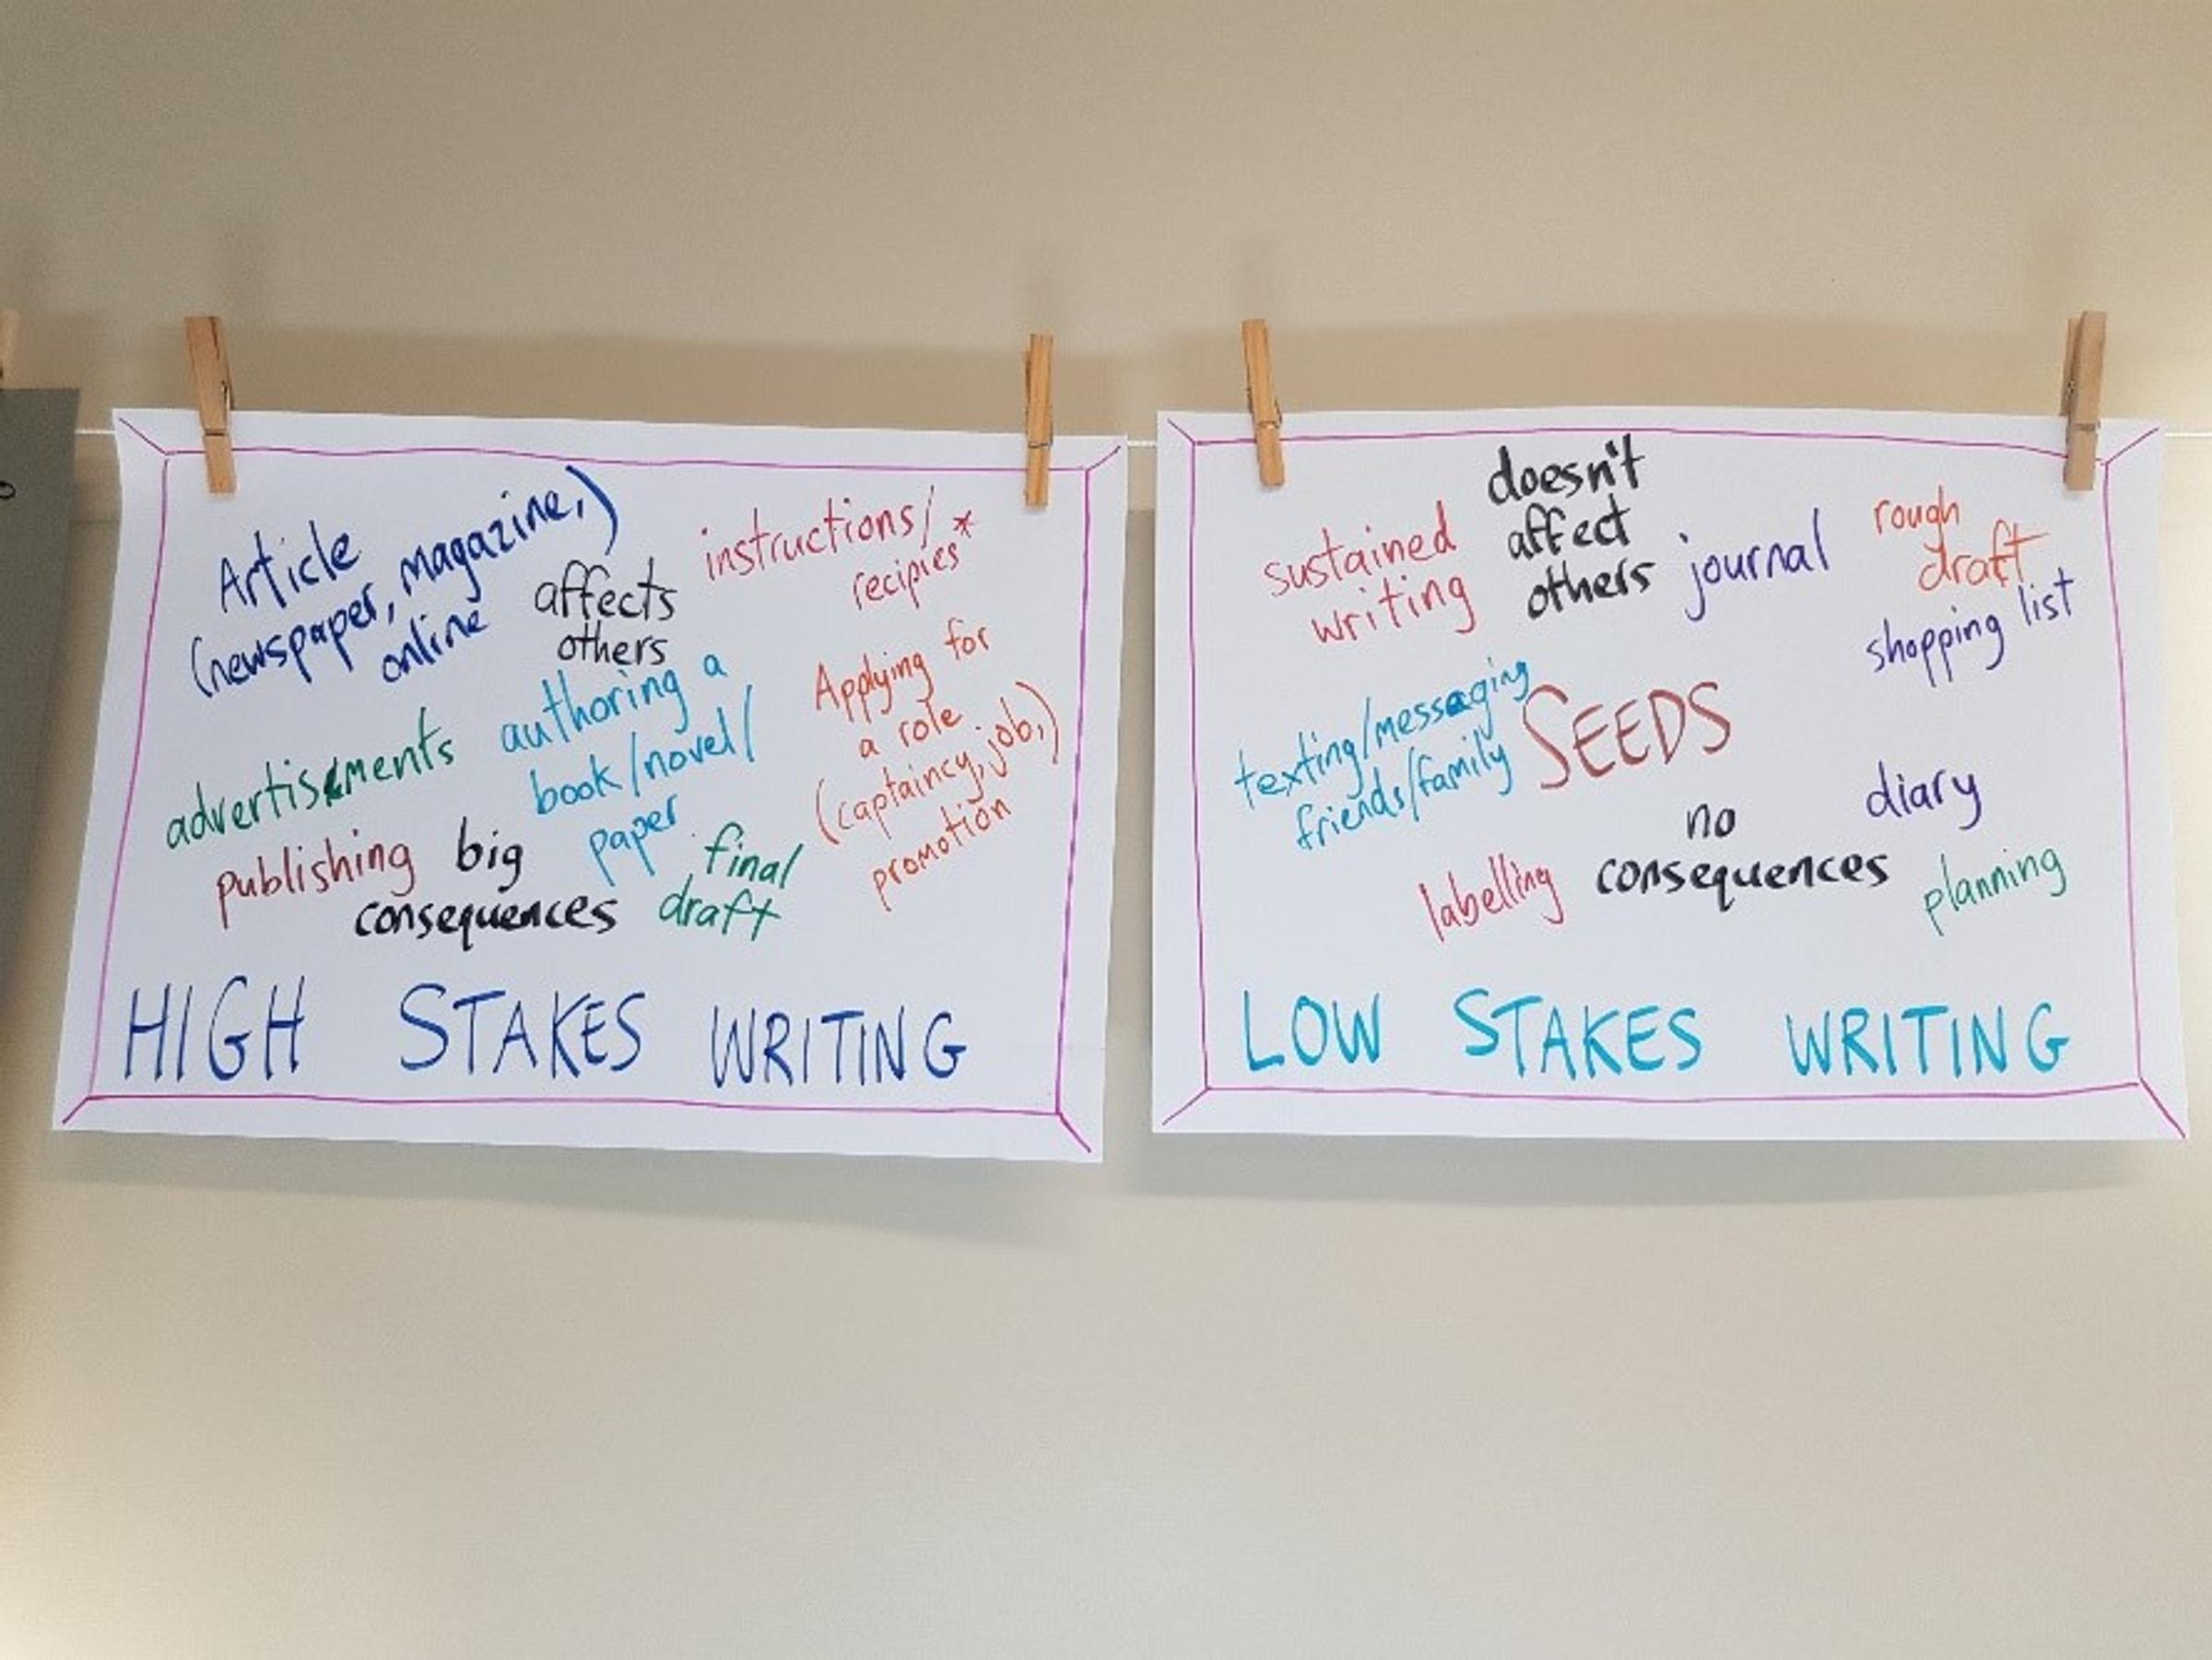 Article
(newspaper, magazine,)
online
affects
others
instructions/ *
recipies*
authoring a
book/novel/
paper
Applying for
a role
(captaincy, job,)
promotion
advertisements
publishing
big
consequences
final
draft
HIGH STAKES WRITING
sustained
writing
doesn't
affect
others
journal
rough
draft
shopping list
texting/messaging
friends/family
SEEDS
diary
no
consequences
labelling
planning
LOW STAKES WRITING